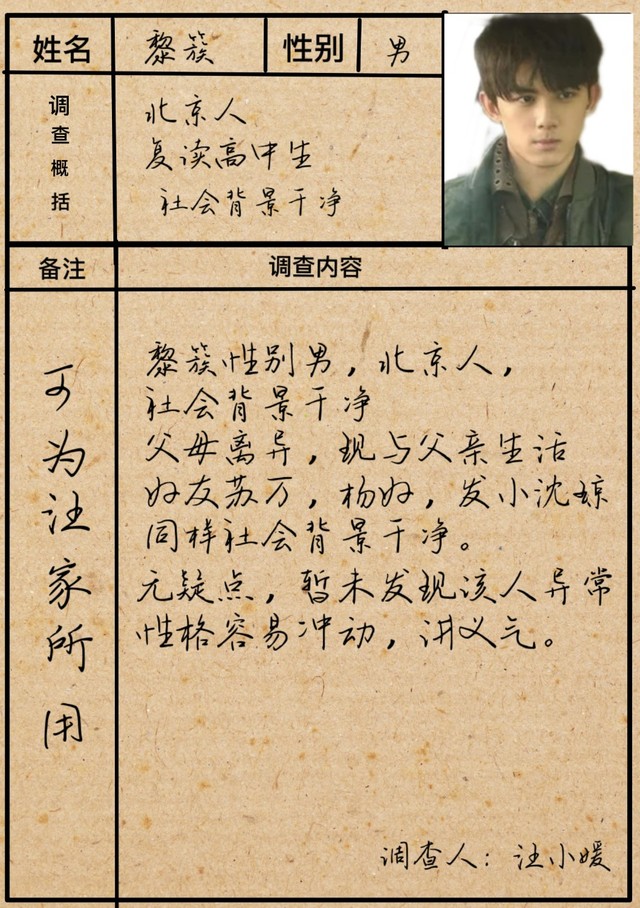 姓名 黎簇 性别 男
调查概括
北京人
复读高中生
社会背景干净
备注 调查内容
可为汪家所用
黎簇性别男，北京人，
社会背景干净
父母离异，现与父亲生活
好友苏万，杨好，发小沈琼
同样社会背景干净。
无疑点，暂未发现该人异常
性格容易冲动，讲义气。
调查人：汪小媛